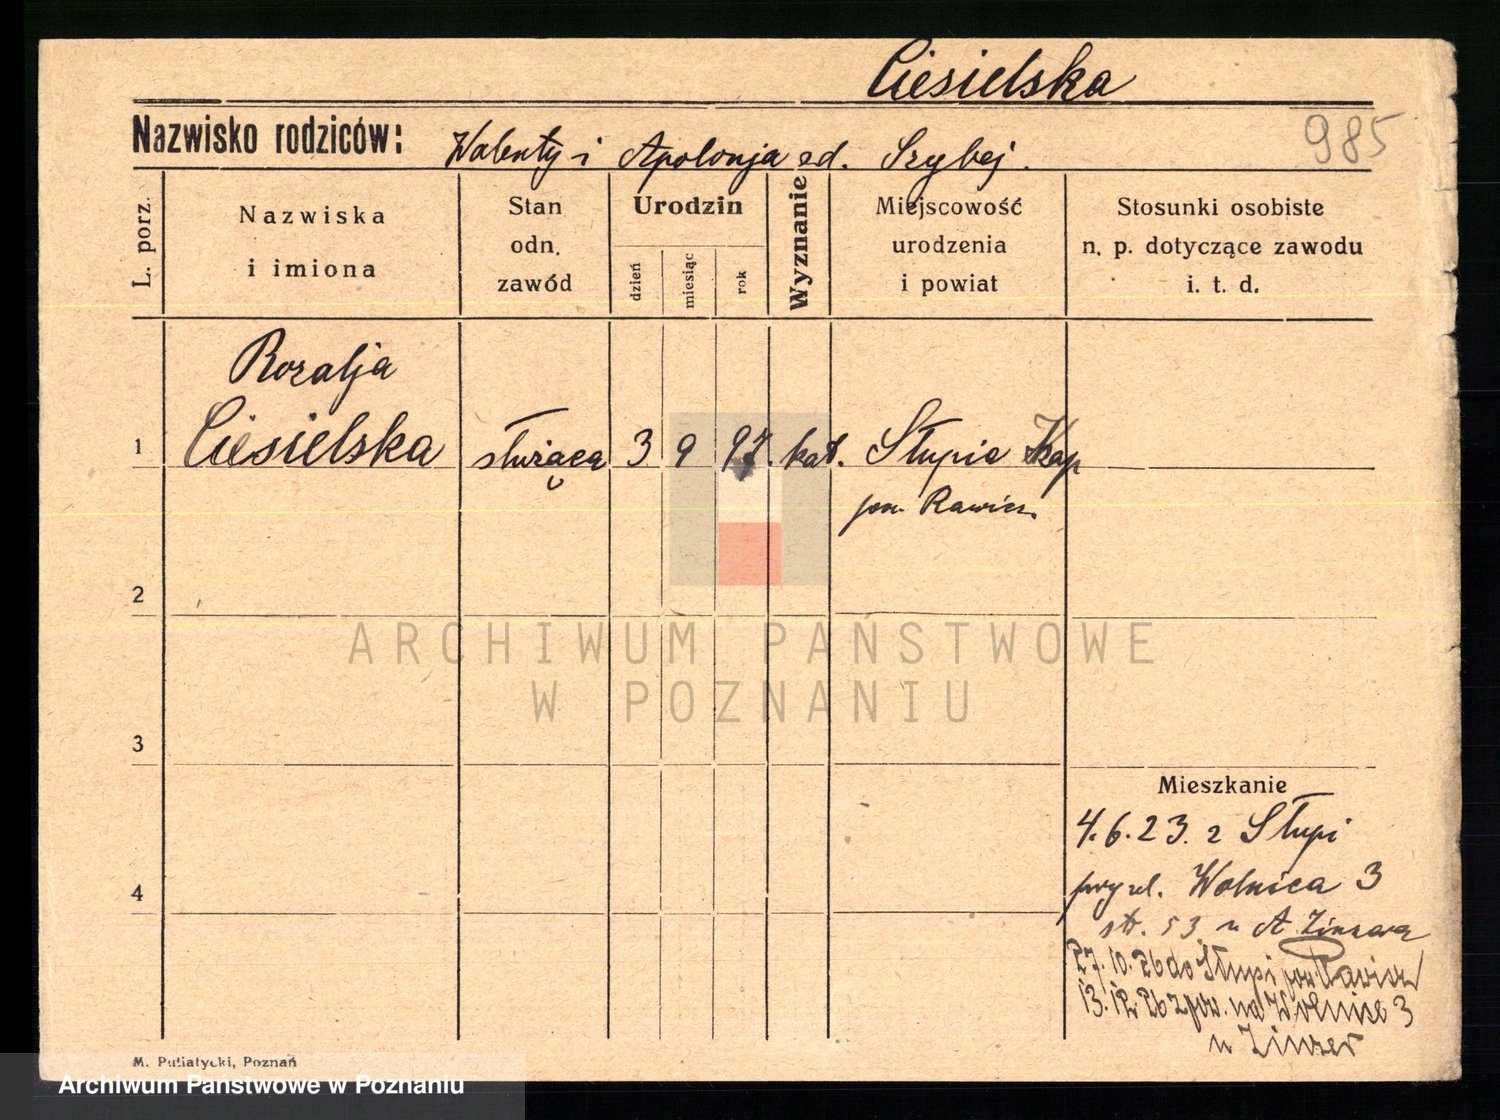 Ciesielska
Nazwisko rodziców: Walenty i Apolonja zd. Szybej.
985
L. porz.
Nazwiska
i imiona
Stan
odn.
zawód
Urodzin
dzień
miesiąc
rok
Wyznanie
Miejscowość
urodzenia
i powiat
Stosunki osobiste
n. p. dotyczące zawodu
i. t. d.
Rozalja
1 Ciesielska służąca 3 9 97. kat. Słupia Kap
pow. Rawicz.
2
3
4
Mieszkanie
4.6.23. z Słupi
przy ul. Wolnica 3
str. 53 u A
27.10.26 do Słupi pow. Rawicz
13.12.26 z pow. na Wolnica 3
u Zinzer
ARCHIWUM PAŃSTWOWE
W POZNANIU
M. Putiatycki, Poznań
Archiwum Państwowe w Poznaniu